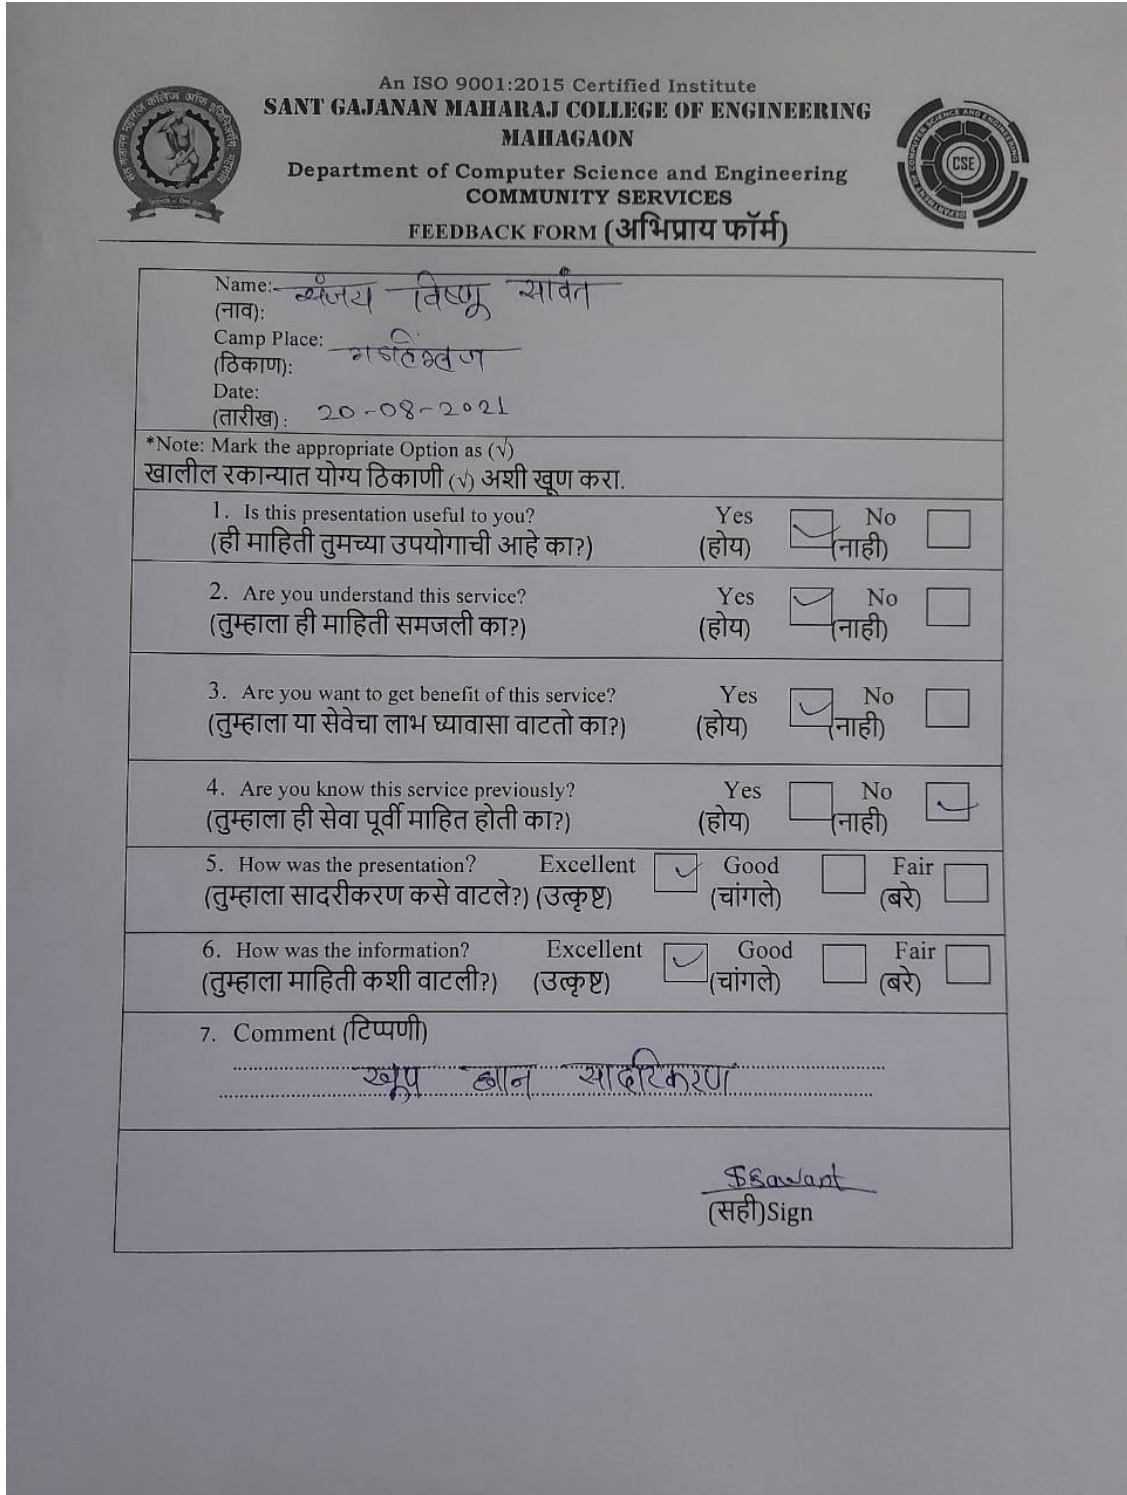 An ISO 9001:2015 Certified Institute
SANT GAJANAN MAHARAJ COLLEGE OF ENGINEERING
MAHAGAON
Department of Computer Science and Engineering
COMMUNITY SERVICES
FEEDBACK FORM (अभिप्राय फॉर्म)
CSE
Name: संजय विष्णू सावंत
(नाव):
Camp Place:
(ठिकाण):
Date:
(तारीख): 20-08-2021
*Note: Mark the appropriate Option as (√)
खालील रकान्यात योग्य ठिकाणी (√) अशी खूण करा.
1. Is this presentation useful to you? Yes No
(ही माहिती तुमच्या उपयोगाची आहे का?) (होय) (नाही)
2. Are you understand this service? Yes No
(तुम्हाला ही माहिती समजली का?) (होय) (नाही)
3. Are you want to get benefit of this service? Yes No
(तुम्हाला या सेवेचा लाभ घ्यावासा वाटतो का?) (होय) (नाही)
4. Are you know this service previously? Yes No
(तुम्हाला ही सेवा पूर्वी माहित होती का?) (होय) (नाही)
5. How was the presentation? Excellent Good Fair
(तुम्हाला सादरीकरण कसे वाटले?) (उत्कृष्ट) (चांगले) (बरे)
6. How was the information? Excellent Good Fair
(तुम्हाला माहिती कशी वाटली?) (उत्कृष्ट) (चांगले) (बरे)
7. Comment (टिप्पणी)
खूप छान सादरिकरण
SSawant
(सही)Sign